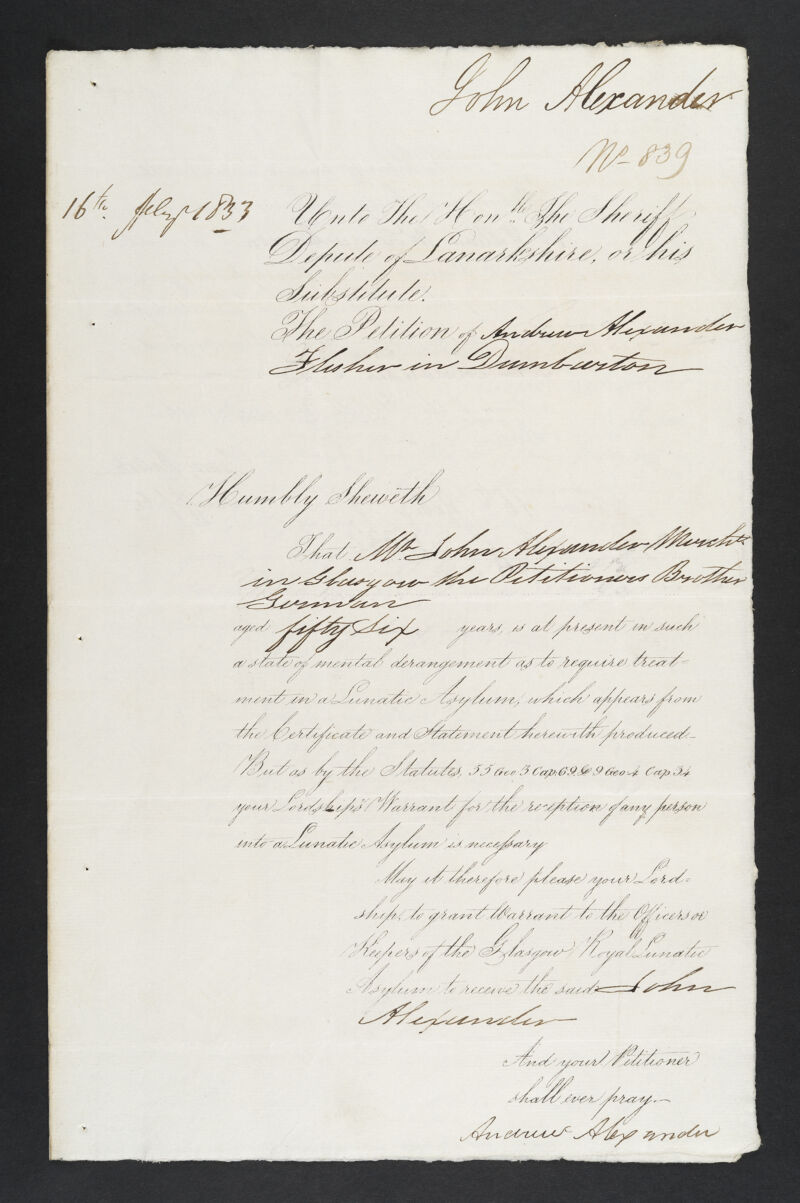 John Alexander
No 839
16th July 1833
Unto The Honble The Sheriff
Depute of Lanarkshire, or his
Substitute.
The Petition of Andrew Alexander
Flesher in Dumbarton
Humbly Sheweth
That Mr John Alexander Mercht
in Glasgow the Petitioners Brother
German
aged fifty six years, is at present in such
a state of mental derangement as to require treat-
ment in a Lunatic Asylum, which appears from
the Certificate and Statement herewith produced-
But as by the Statutes, 55 Geo 3 Cap. 69 & 9 Geo 4 Cap 34
your Lordship's Warrant for the reception of any person
into a Lunatic Asylum is necessary
May it therefore please your Lord-
ship, to grant Warrant to the Officers or
Keepers of the Glasgow Royal Lunatic
Asylum to receive the said John
Alexander
And your Petitioner
shall ever pray.-
Andrew Alexander